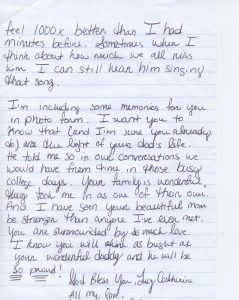 feel 1000x better than I had
minutes before. Sometimes when I
think about how much we all miss
him I can still hear him singing
that song.
I'm including some memories for you
in photo form. I want you to
know that (and I'm sure you already
do) are the light of your dad's life.
He told me so in our conversations we
would have from time in those busy
college days. Your family is wonderful,
they took me in as one of their own.
And I have seen your beautiful mom
be stronger than anyone I've ever met.
You are surrounded by so much love.
I know you will shine as bright as
your wonderful daddy and he will be
so proud!
God Bless You,
All my love,